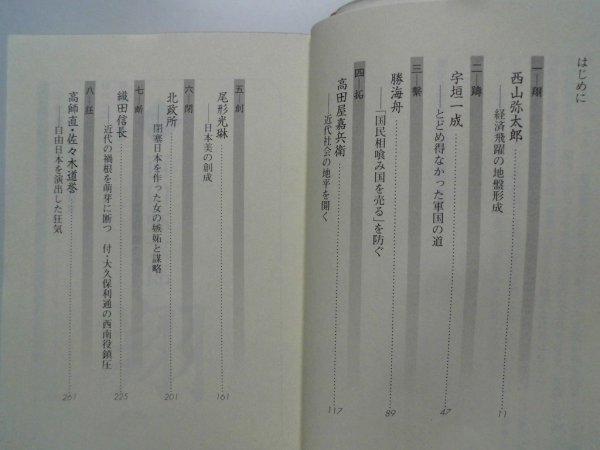 はじめに
一──翔
西山弥太郎
──経済飛躍の地盤形成
11
二──躊
宇垣一成
──とどめ得なかった軍国の道
47
三──繫
勝海舟
──「国民相喰み国を売る」を防ぐ
89
四──拓
高田屋嘉兵衛
──近代社会の地平を開く
117
五──創
尾形光琳
──日本美の創成
161
六──閉
北政所
──閉塞日本を作った女の嫉妬と謀略
201
七──断
織田信長
──近代の禍根を萌芽に断つ 付・大久保利通の西南役鎮圧
225
八──狂
高師直・佐々木道誉
──自由日本を演出した狂気
261